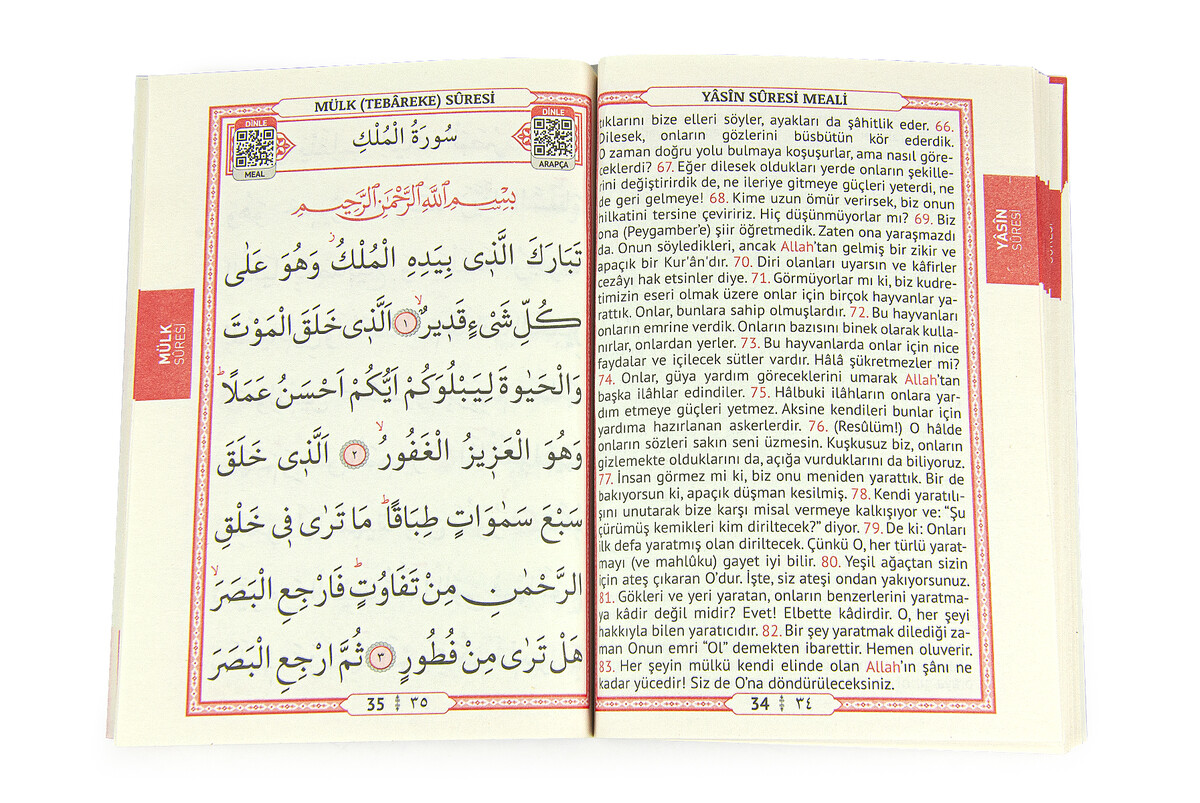 YÂSÎN SÛRESİ MEALİ
tıklarını bize elleri söyler, ayakları da şâhitlik eder. 66.
Dilesek, onların gözlerini büsbütün kör ederdik.
O zaman doğru yolu bulmaya koşuşurlar, ama nasıl göre-
ceklerdi? 67. Eğer dilesek oldukları yerde onların şekille-
rini değiştirirdik de, ne ileriye gitmeye güçleri yeterdi, ne
de geri gelmeye! 68. Kime uzun ömür verirsek, biz onun
hilkatini tersine çeviririz. Hiç düşünmüyorlar mı? 69. Biz
ona (Peygamber'e) şiir öğretmedik. Zaten ona yaraşmazdı
da. Onun söyledikleri, ancak Allah'tan gelmiş bir zikir ve
apaçık bir Kur'ân'dır. 70. Diri olanları uyarsın ve kâfirler
cezâyı hak etsinler diye. 71. Görmüyorlar mı ki, biz kudre-
timizin eseri olmak üzere onlar için birçok hayvanlar ya-
rattık. Onlar, bunlara sahip olmuşlardır. 72. Bu hayvanları
onların emrine verdik. Onların bazısını binek olarak kulla-
nırlar, onlardan yerler. 73. Bu hayvanlarda onlar için nice
faydalar ve içilecek sütler vardır. Hâlâ şükretmezler mi?
74. Onlar, güya yardım göreceklerini umarak Allah'tan
başka ilâhlar edindiler. 75. Hâlbuki ilâhların onlara yar-
dım etmeye güçleri yetmez. Aksine kendileri bunlar için
yardıma hazırlanan askerlerdir. 76. (Resûlüm!) O hâlde
onların sözleri sakın seni üzmesin. Kuşkusuz biz, onların
gizlemekte olduklarını da, açığa vurduklarını da biliyoruz.
77. İnsan görmez mi ki, biz onu meniden yarattık. Bir de
bakıyorsun ki, apaçık düşman kesilmiş. 78. Kendi yaratılı-
şını unutarak bize karşı misal vermeye kalkışıyor ve: "Şu
çürümüş kemikleri kim diriltecek?" diyor. 79. De ki: Onları
ilk defa yaratmış olan diriltecek. Çünkü O, her türlü yarat-
mayı (ve mahlûku) gayet iyi bilir. 80. Yeşil ağaçtan sizin
için ateş çıkaran O'dur. İşte, siz ateşi ondan yakıyorsunuz.
81. Gökleri ve yeri yaratan, onların benzerlerini yaratma-
ya kâdir değil midir? Evet! Elbette kâdirdir. O, her şeyi
hakkıyla bilen yaratıcıdır. 82. Bir şey yaratmak dilediği za-
man Onun emri "Ol" demekten ibarettir. Hemen oluverir.
83. Her şeyin mülkü kendi elinde olan Allah'ın şânı ne
kadar yücedir! Siz de O'na döndürüleceksiniz.
34 ٣٤
YÂSÎN
SÛRESİ
SÛRESİ
MÜLK (TEBÂREKE) SÛRESİ
DİNLE
MEAL
سُورَةُ الْمُلْكِ
DİNLE
ARAPÇA
بِسْمِ اللّٰهِ الرَّحْمٰنِ الرَّحِيمِ
تَبَارَكَ الَّذٖى بِيَدِهِ الْمُلْكُ وَهُوَ عَلٰى
كُلِّ شَىْءٍ قَدٖيرٌۙ ١ اَلَّذٖى خَلَقَ الْمَوْتَ
وَالْحَيٰوةَ لِيَبْلُوَكُمْ اَيُّكُمْ اَحْسَنُ عَمَلًاؕ
وَهُوَ الْعَزٖيزُ الْغَفُورُۙ ٢ اَلَّذٖى خَلَقَ
سَبْعَ سَمٰوَاتٍ طِبَاقًاؕ مَا تَرٰى فٖى خَلْقِ
الرَّحْمٰنِ مِنْ تَفَاوُتٍؕ فَارْجِعِ الْبَصَرَۙ
هَلْ تَرٰى مِنْ فُطُورٍ ٣ ثُمَّ ارْجِعِ الْبَصَرَ
35 ٣٥
MÜLK
SÛRESİ